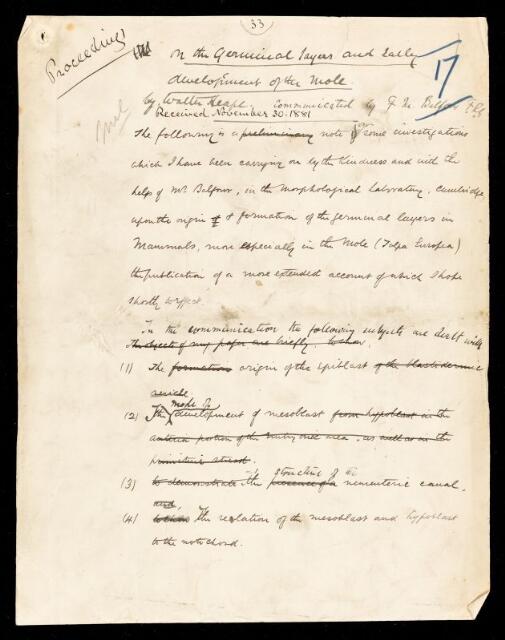 33
Proceedings
On the Germinal layers and Early
17
development of the Mole.
by Walter Heape. Communicated by F. M. Balfour F.R.S.
Received November 30. 1881
The following is a preliminary note on some investigations
which I have been carrying on by the kindness and with the
help of Mr Balfour, in the Morphological Laboratory, Cambridge,
upon the origin & formation of the germinal layers in
Mammals, more especially in the Mole (Talpa Europea)
the publication of a more extended account of which I hope
shortly to effect.
In the communication the following subjects are dealt with
The objects of my paper are briefly, to show.
(1) The formation origin of the epiblast of the blastodermic
vesicle
(2) The mode of development of mesoblast from hypoblast in the
anterior portion of the embryonic area, as well as in the
primitive streak.
(3) to demonstrate the presence of a structure of the neurenteric canal.
and,
(4) to show The relation of the mesoblast and hypoblast
to the notochord.